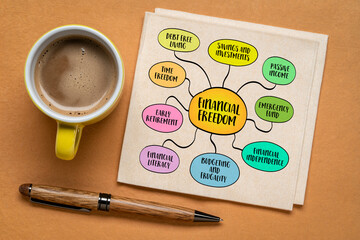 DEBT FREE
LIVING
SAVINGS AND
INVESTMENTS
PASSIVE
INCOME
TIME
FREEDOM
EMERGENCY
FUND
FINANCIAL
FREEDOM
EARLY
RETIREMENT
FINANCIAL
INDEPENDENCE
FINANCIAL
LITERACY
BUDGETING
AND
FRUGALITY